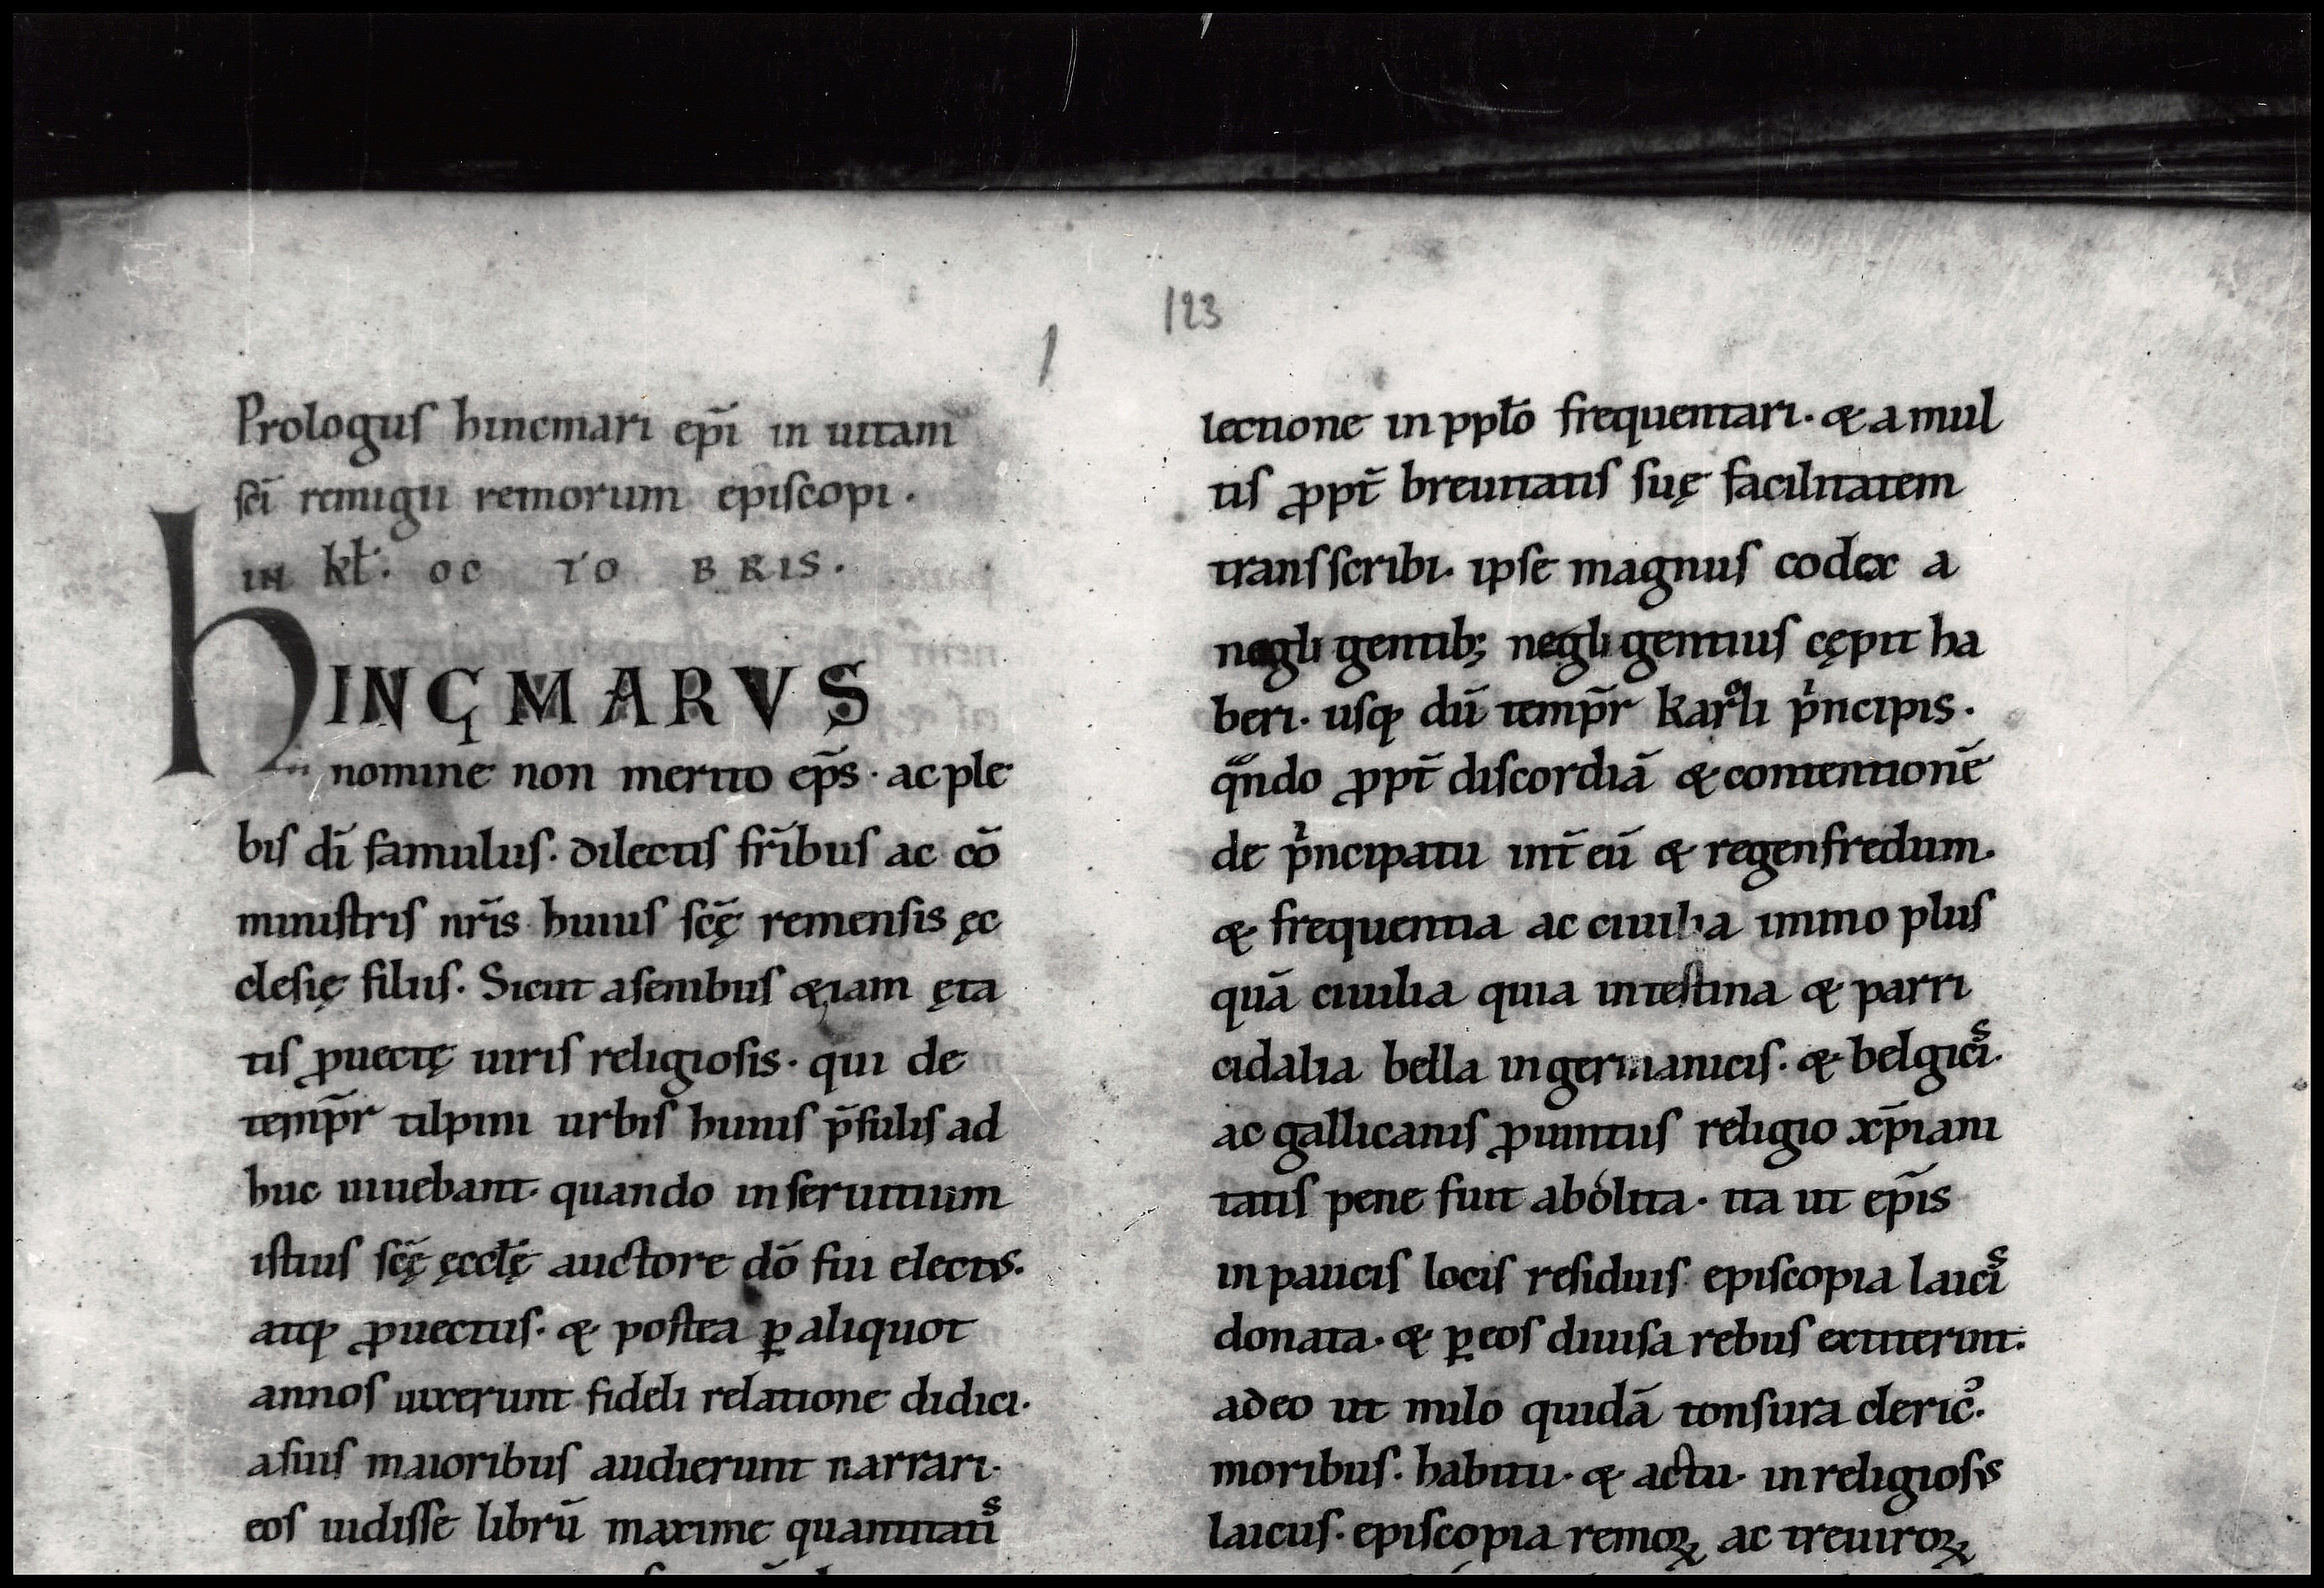 123
Prologus hincmari ep̄i in uitam
sc̄i remigii remorum episcopi.
IN kł. OC TO BRIS.
hINÇMARVS
nomine non merito ep̄s. ac ple
bis dī famulus. dilectis fr̄ibus ac cō
ministris nr̄is huius sc̄ę remensis ęc
clesię filiis. Sicut a senibus &iam ęta
tis ꝓuectę uiris religiosis. qui de
temp̄r tilpini urbis huius p̄sulis ad
huc uiuebant. quando in seruitium
istius sc̄ę ęccłę auctore dō fui electus.
atq; ꝓuectus. & postea ꝑ aliquot
annos uixerunt fideli relatione didici.
a suis maioribus audierunt narrari.
eos uidisse librū maxime quantitatis
lectione in ppło frequentari. & a mul
tis ꝓpt̄ breuitatis suę facilitatem
transscribi. ipse magnus codex a
negligentib; negligentius cępit ha
beri. usq; dū temp̄r karoli pͥncipis.
qͣndo ꝓpt̄ discordiā & contentionē
de pͥncipatu int̄ eū & regenfredum.
& frequentia ac ciuilia immo plus
quā ciuilia quia intestina & parri
cidalia bella in germanicis. & belgicis.
ac gallicanis ꝓuintiis religio xp̄iani
tatis pene fuit abolita. ita ut ep̄is
in paucis locis residuis episcopia laicis
donata. & ꝑ eos diuisa rebus extiterint.
adeo ut milo quidā tonsura cleric᾿.
moribus. habitu. & actu. inreligiosus
laicus. episcopia remoꝝ ac treuiroꝝ